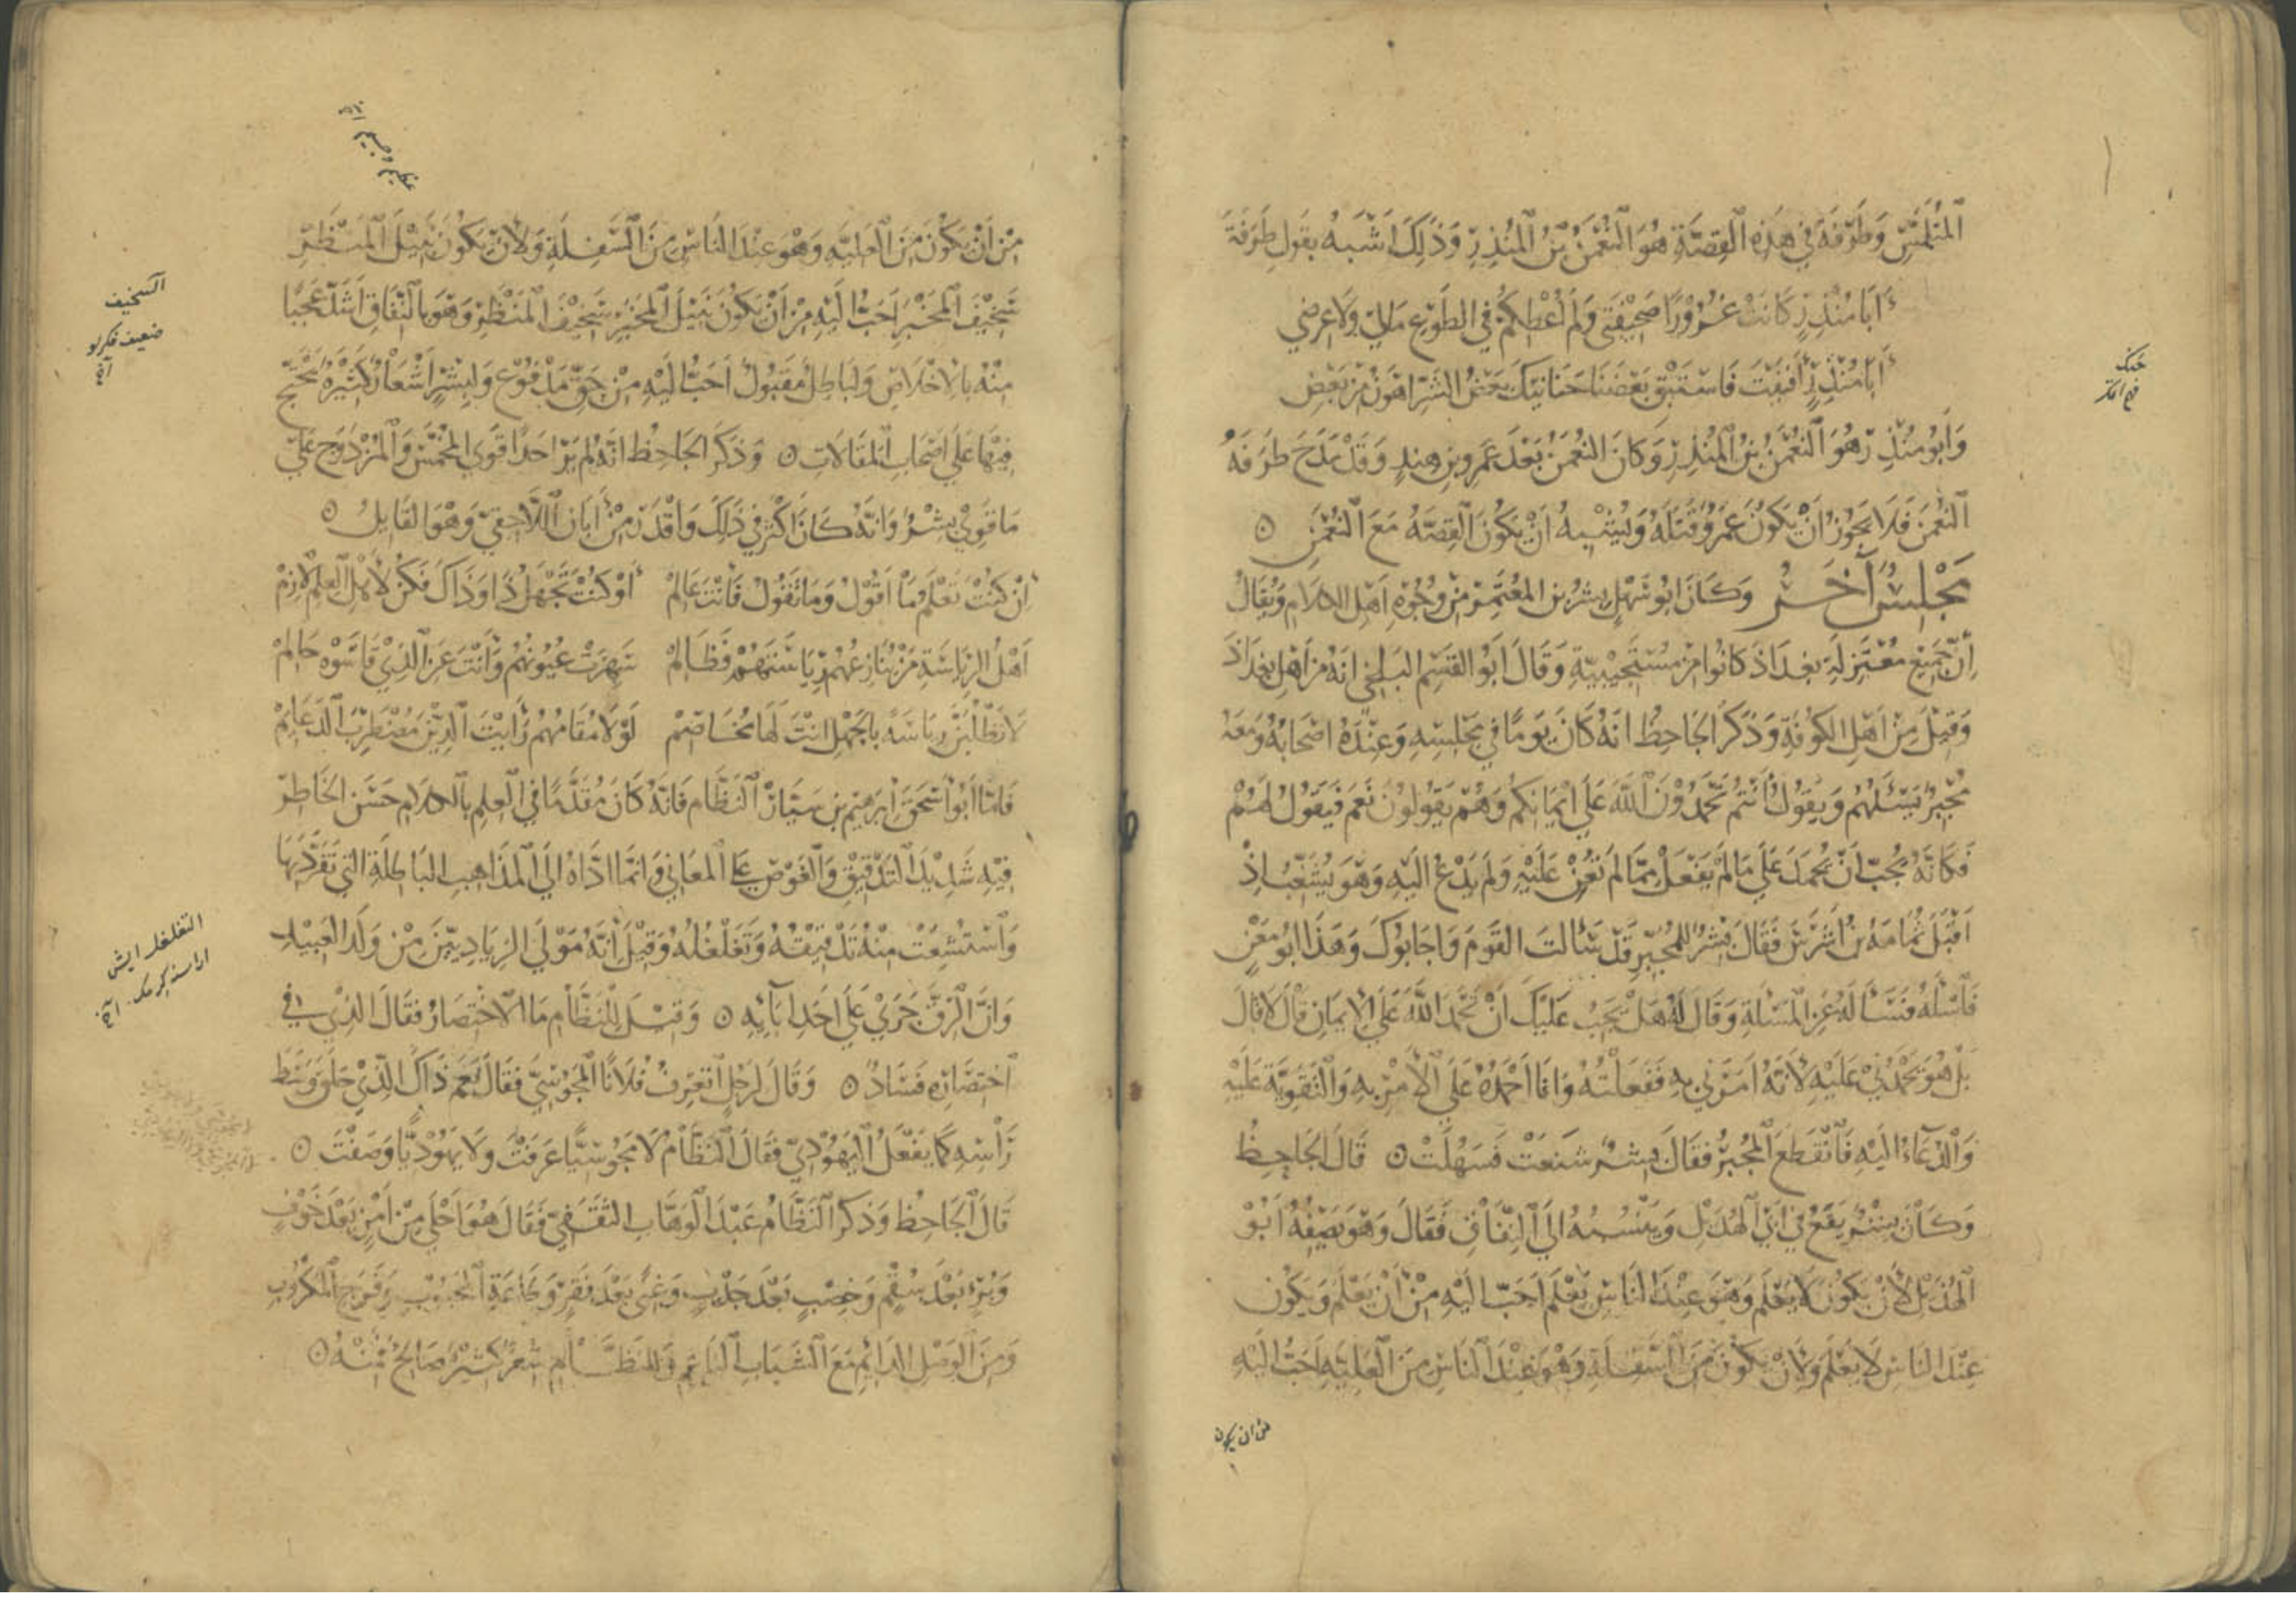 المتلمس وَطَرَفَةَ في هَذِهِ الْقِصَّةِ هُوَ النُّعْمٰنُ بْنُ الْمُنْذِرِ وَذَلِكَ اَشْبَهُ بِقَوْلِ طَرَفَةَ
أَبَا مُنْذِرٍ كَانَتْ غُرُوْرًا صَحِيْفَتِي وَلَمْ أُعْطِكُمْ فِي الطَّوْعِ مَالِي وَلَا عِرْضِي
أَبَا مُنْذِرٍ أَفْنَيْتَ فَاسْتَبْقِ بَعْضَنَا حَنَانَيْكَ بَعْضُ الشَّرِّ اَهْوَنُ مِنْ بَعْضِ
وَاَبُو مُنْذِرٍ هُوَ النُّعْمٰنُ بْنُ الْمُنْذِرِ وَكَانَ النُّعْمٰنُ بَعْدَ عَمْرِو بْنِ هِنْدٍ وَقَدْ مَدَحَ طَرَفَةُ
النُّعْمٰنَ فَلَا يَجُوْزُ اَنْ يَكُوْنَ عَمْرٌو قَتَلَهُ وَيُشْبِهُ اَنْ يَكُوْنَ الْقِصَّةُ مَعَ النُّعْمٰنِ ٥
مَجْلِسٌ آخَرُ وَكَانَ اَبُو سَهْلٍ بِشْرُ بْنُ الْمُعْتَمِرِ مِنْ وُجُوْهِ اَهْلِ الكلَامِ وَيُقَالُ
اِنَّ جَمِيْعَ مُعْتَزِلَةِ بَغْدَاذَ كَانُوا مِنْ مُسْتَجِيْبِيْهِ وَقَالَ اَبُو الْقٰسِمِ الْبَلْخِي اِنَّهُ مِنْ اَهْلِ بَغْدَاذَ
وَقِيْلَ مِنْ اَهْلِ الكُوْفَةِ وَذَكَرَ الجَاحِظُ اَنَّهُ كَانَ يَوْمًا فِي مَجْلِسِهِ وَعِنْدَهُ اَصْحَابُهُ وَمَعَهُ
مُجْبِرٌ يَسْئَلُهُمْ وَيَقُوْلُ اَنْتُمْ تَحْمَدُوْنَ اللّٰهَ عَلَى اِيْمَانِكُمْ وَهُمْ يَقُولُونَ نَعَمْ فَيَقُولُ لَهُمْ
فَكَاَنَّهُ يُحِبُّ اَنْ يُحْمَدَ عَلَى مَا لَمْ يَفْعَلْ مِمَّا لَمْ نُعِنْ عَلَيْهِ وَلَمْ يَدْعُ اِلَيْهِ وَهُوَ يُشَغِّبُ اِذْ
اَقْبَلَ ثُمَامَةُ بْنُ اَشْرَسَ فَقَالَ بِشْرٌ لِلْمُجْبِرِ قَدْ سَاَلْتَ القَوْمَ وَاَجَابُوكَ وَهَذَا اَبُو مَعْنٍ
فَاسْئَلْهُ فَسَاَلَهُ عَنِ الْمَسْئَلَةِ وَقَالَ لَهُ هَلْ يَجِبُ عَلَيْكَ اَنْ تَحْمَدَ اللّٰهَ عَلَى الْاِيْمَانِ قَالَ لَا قَالَ
بَلْ هُوَ يَحْمَدُنِي عَلَيْهِ لِاَنَّهُ اَمَرَنِي بِهِ فَفَعَلْتُهُ وَاَنَا اَحْمَدُهُ عَلَى الْاَمْرِ بِهِ وَالتَّقْوِيَةِ عَلَيْهِ
وَالدُّعَاءِ اِلَيْهِ فَانْقَطَعَ الْمُجْبِرُ فَقَالَ بِشْرٌ شَنُعَتْ فَسَهُلَتْ ٥ قَالَ الجَاحِظُ
وَكَانَ بِشْرٌ يَقَعُ فِي اَبِي الْهُذَيْلِ وَيَنْسُبُهُ اِلَى النِّفَاقِ فَقَالَ وَهُوَ يَصِفُهُ اَبُوْ
الْهُذَيْلِ لَاَنْ يَكُوْنَ لَا يَعْلَمُ وَهُوَ عِنْدَ النَّاسِ يَعْلَمُ اَحَبُّ اِلَيْهِ مِنْ اَنْ يَعْلَمَ وَيَكُونَ
عِنْدَ النَّاسِ لَا يَعْلَمُ وَلَاَنْ يَكُوْنَ مِنَ السِّفْلَةِ وَهُوَ عِنْدَ النَّاسِ مِنَ الْعِلْيَةِ اَحَبُّ اِلَيْهِ
من ان يكون
مِنْ اَنْ يَكُوْنَ مِنَ الْعِلْيَةِ وَهُوَ عِنْدَ النَّاسِ مِنَ السِّفْلَةِ وَلَاَنْ يَكُوْنَ نَبِيْلَ الْمَنْظَرِ
سَخِيْفَ الْمَخْبَرِ اَحَبُّ اِلَيْهِ مِنْ اَنْ يَكُوْنَ نَبِيْلَ الْمَخْبَرِ سَخِيْفَ الْمَنْظَرِ وَهُوَ بِالنِّفَاقِ اَشَدُّ عُجْبًا
مِنْهُ بِالْاِخْلَاصِ وَلَبَاطِلٌ مَقْبُوْلٌ اَحَبُّ اِلَيْهِ مِنْ حَقٍّ مَدْفُوْعٍ وَلِبِشْرٍ اَشْعَارٌ كَثِيْرَةٌ يَحْتَجُّ
فِيْهَا عَلَى اَصْحَابِ الْمَقَالَاتِ ٥ وَذَكَرَ الجَاحِظُ اَنَّهُ لَمْ يَرَ اَحَدًا قَوِيَ الْمُخَمَّسَ وَالْمُزْدَوِجَ عَلَى
مَا قَوِيَ بِشْرٌ وَاَنَّهُ كَانَ اَكْثَرَ فِي ذَلِكَ وَاَقْدَرَ مِنْ اَبَانَ اللَّاحِقِيِّ وَهُوَ القَايِلُ ٥
اِنْ كُنْتَ تَعْلَمُ مَا اَقُوْلُ وَمَا تَقُوْلُ فَاَنْتَ عَالِمْ اَوْ كُنْتَ تَجْهَلُ ذَا وَذَاكَ فَكُنْ لِاَهْلِ الْعِلْمِ لَازِمْ
اَهْلُ الرِّيَاسَةِ مَنْ يُنَازِعُهُمْ رِيَاسَتَهُمْ فَظَالِمْ سَهِرَتْ عُيُونُهُمْ وَاَنْتَ عَنِ الَّذِيْ قَاسَوْهُ حَالِمْ
لَا تَطْلُبَنَّ رِيَاسَةً بِالجَهْلِ اَنْتَ لَهَا مُخَاصِمْ لَوْلَا مُقَامُهُمْ رَاَيْتَ الدِّيْنَ مُضْطَرِبَ الدَّعَايِمْ
فَاَمَّا اَبُوْ اِسْحٰقَ اِبْرٰهِيْمُ بْنُ سَيَّارٍ النَّظَّامُ فَاِنَّهُ كَانَ مُقَدَّمًا فِي الْعِلْمِ بِالكلَامِ حَسَنَ الخَاطِرِ
فِيْهِ شَدِيْدَ التَّدْقِيْقِ وَالْغَوْصِ عَلَى الْمَعَانِي وَاِنَّمَا اَدَّاهُ اِلَى الْمَذَاهِبِ البَاطِلَةِ الَّتِي تَفَرَّدَ بِهَا
وَاسْتُشْنِعَتْ مِنْهُ تَدْقِيْقُهُ وَتَغَلْغُلُهُ وَقِيْلَ اِنَّهُ مَوْلَى الزِّيَادِيِّيْنَ مِنْ وَلَدِ الْعَبِيْدِ
وَاِنَّ الرِّقَّ جَرَى عَلَى اَحَدِ اٰبَائِهِ ٥ وَقِيْلَ لِلنَّظَّامِ مَا الْاِخْتِصَارُ فَقَالَ الَّذِيْ فِي
اخْتِصَارِهِ فَسَادٌ ٥ وَقَالَ لِرَجُلٍ اَتَعْرِفُ فُلَانًا الْمَجُوْسِيَّ فَقَالَ نَعَمْ ذَاكَ الَّذِيْ حَلَقَ وَسَطَ
رَأْسِهِ كَمَا يَفْعَلُ الْيَهُوْدِيُّ فَقَالَ النَّظَّامُ لَا مَجُوْسِيًّا عَرَفْتَ وَلَا يَهُوْدِيًّا وَصَفْتَ ٥
قَالَ الجَاحِظُ وَذَكَرَ النَّظَّامُ عَبْدَ الْوَهَّابِ الثَّقَفِيَّ فَقَالَ هُوَ اَحْلَى مِنْ اَمْنٍ بَعْدَ خَوْفٍ
وَبُرْءٍ بَعْدَ سُقْمٍ وَخِصْبٍ بَعْدَ جَدْبٍ وَغِنًى بَعْدَ فَقْرٍ وَطَاعَةِ الْمَحْبُوْبِ وَفَرَجِ الْمَكْرُوْبِ
وَمِنَ الْوَصْلِ الدَّائِمِ مَعَ الشَّبَابِ النَّاعِمِ وَلِلنَّظَّامِ شِعْرٌ كَثِيْرٌ صَالِحٌ فَمِنْهُ ٥
السخيف
ضعيف
التغلغل